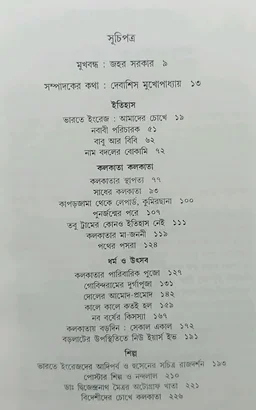 সূচিপত্র
মুখবন্ধ : জহর সরকার ৯
সম্পাদকের কথা : দেবাশিস মুখোপাধ্যায় ১৩
ইতিহাস
ভারতে ইংরেজ : আমাদের চোখে ১৯
নবাবী পরিচারক ৫১
বাবু আর বিবি ৬২
নাম বদলের বোকামি ৭২
কলকাতা কলকাতা
কলকাতার স্থাপত্য ৭৭
সাধের কলকাতা ৯৩
কাপড়জামা থেকে লেপার্ড, কুমিরছানা ১০০
পুনর্জন্মের পরে ১০৭
তবু ট্রামের কোনও ইতিহাস নেই ১১১
কলকাতার মা-জননী ১১৯
পথের পসরা ১২৪
ধর্ম ও উৎসব
কলকাতার পারিবারিক পুজো ১২৭
গোবিন্দরামের দুর্গাপূজা ১৩১
দোলের আমোদ-প্রমোদ ১৪২
কালে কালে কতই হল ১৫৯
নব বর্ষের কিসস্যা ১৬৭
কলকাতায় বড়দিন : সেকাল একাল ১৭২
বড়লাটের উপস্থিতিতে নিউ ইয়ার্স ইভ ১৯১
শিল্প
ভারতে ইংরেজদের আদিপর্ব ও হুসেনের সচিত্র রাজদর্শন ১৯৩
পোস্টার শিল্প ও নন্দলাল ২১০
ডাঃ দ্বিজেন্দ্রনাথ মৈত্রর অটোগ্রাফ খাতা ২২১
বিদেশীদের চোখে কলকাতা ২২৬